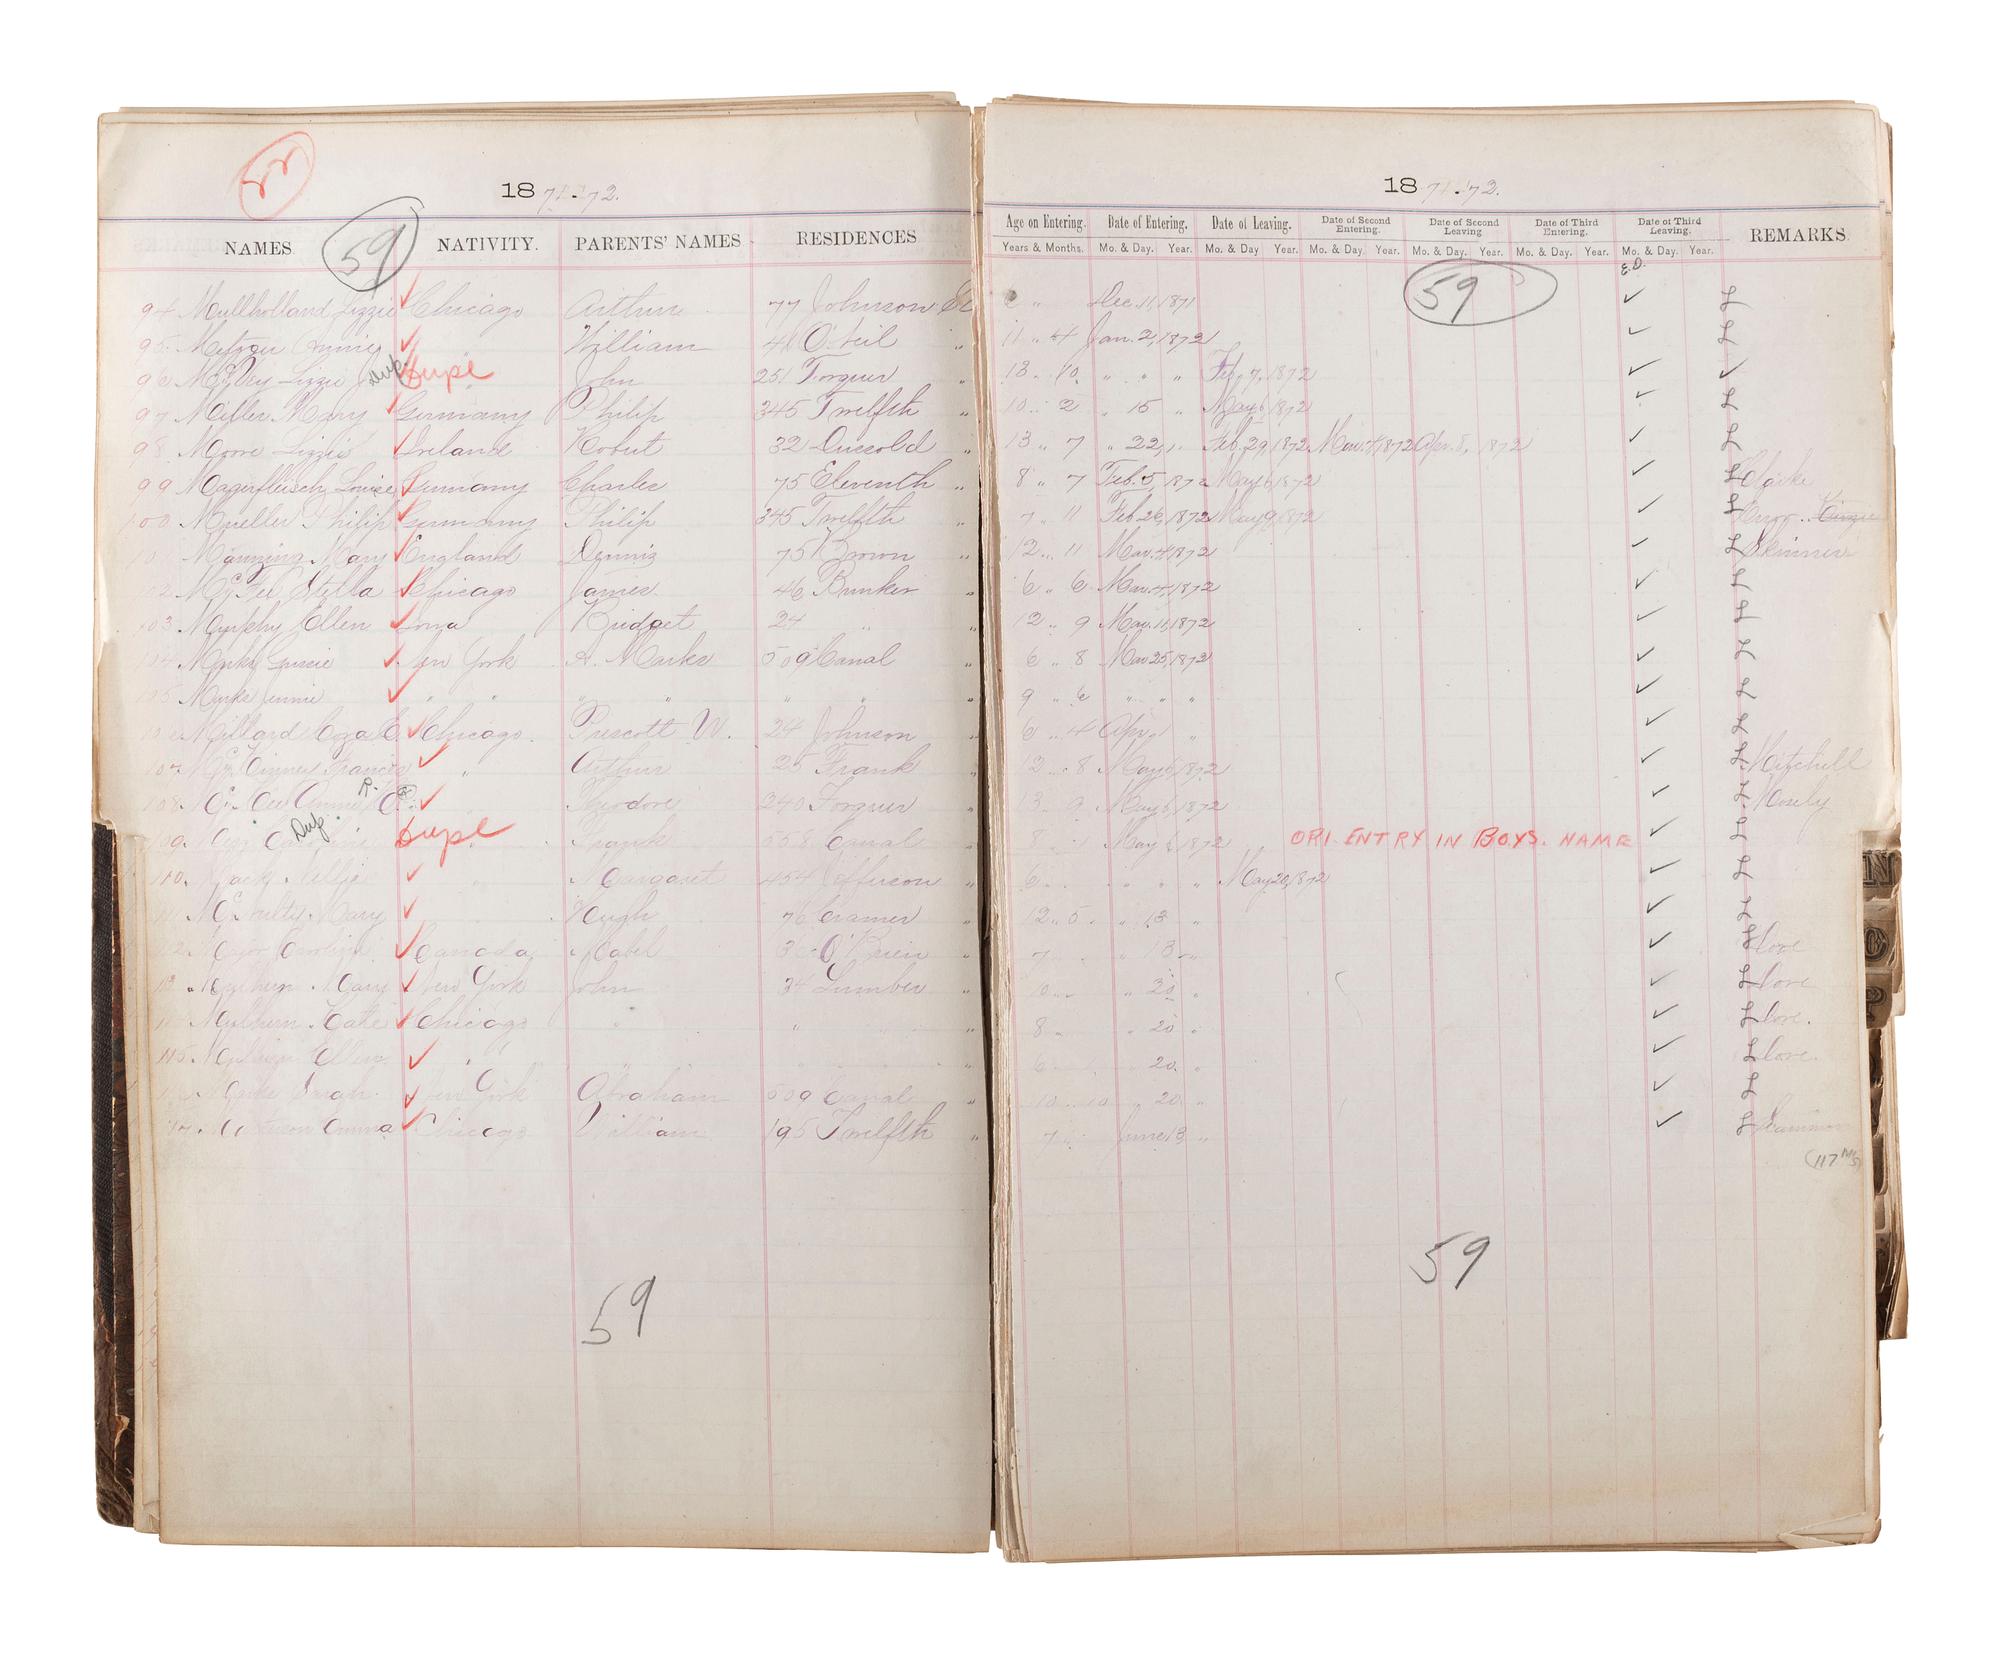 22
1871-72.
59
NAMES. NATIVITY. PARENTS' NAMES RESIDENCES
94 Mullholland Lizzie Chicago Arthur 77 Johnson St
95 Metzger Annie " William 41 O'Neil "
96 Lizzie J Dup Dupe John 251 Forquer "
97 Miller Mary Germany Philip 345 Twelfth "
98 Moore Lizzie Ireland Robert 32 "
99 Magerfleisch Louise Germany Charles 75 Eleventh "
100 Mueller Philip Germany Philip 345 Twelfth "
101 Manning Mary England Dennis 75 Brown "
102 McFee Stella Chicago James 46 Bunker "
103 Murphy Ellen Iowa Bridget 24 " "
104 Marks New York A. Marks 509 Canal "
105 Marks Jennie " " " " " "
106 Millard Cora E Chicago. Prescott W. 24 Johnson "
107 McKinney Frances " Arthur 25 Frank "
108 Mc Annie R. Theodore 240 Forquer "
109 Dup. Dupe Frank 558 Canal "
110. Mack Nellie " Margaret 454 Jefferson "
111 McNulty Mary Hugh 76 Cramer "
112 Major Caroline Canada Mabel O'Brien "
113 Mulhern Mary New York John 34 Lumber "
114 Mulhern Kate Chicago " " "
115. Mulhern Ellen " "
116 Marks Sarah New York Abraham 509 Canal "
117. Emma Chicago William 195 Twelfth "
59
1871-72.
Age on Entering. Date of Entering. Date of Leaving. Date of Second Entering. Date of Second Leaving Date of Third Entering. Date of Third Leaving. REMARKS.
Years & Months. Mo. & Day. Year. Mo. & Day Year. Mo. & Day. Year. Mo. & Day. Year. Mo. & Day. Year. Mo. & Day. Year.
E.D.
59
" Dec. 11, 1871
11 " 4 Jan. 2, 1872
13 " 10 " " " Feb. 7, 1872
10 " 2 " 15 " May 6, 1872
13 " 7 " 22, " Feb. 29, 1872 Mar. 4, 1872 Apr. 8, 1872
8 " 7 Feb. 5, 1872 May 6, 1872 Clarke
7 " 11 Feb 26, 1872 May 9, 1872
12 " 11 Mar. 4, 1872 Skinner
6 " 6 Mar. 4, 1872
12 " 9 Mar. 11, 1872
6 " 8 Mar 25, 1872
9 " 6 " " "
6 " 4 Apr. 1 "
12 " 8 May 6, 1872 Mitchell
13 " 9 May 6, 1872 Mosely
8 " 1 May 6, 1872 ORI. ENTRY IN BOYS. NAME
6 " " " " May 20, 1872
12 " 5 " 13 "
7 " " 13 " Love
10 " " 20 " Love
8 " " 20 " Love.
6 " 20. " Love.
10 " 10 " 20 "
7 " June 13 " Scammon
(117 M's)
59